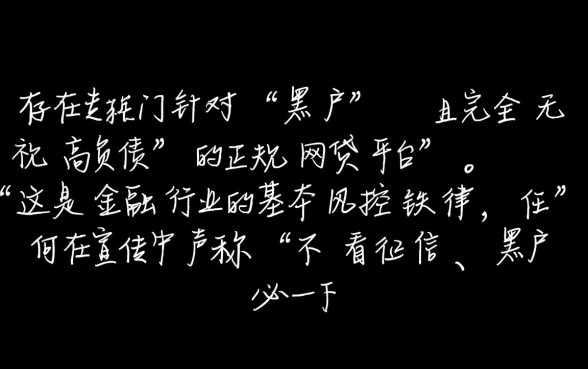 存在专门针对“黑户” 且完全无
视高负债” 的正规网贷平台”。
“这是金融行业的基本风控铁律，任”
何在宣传中声称“不看征信、黑户
必一下